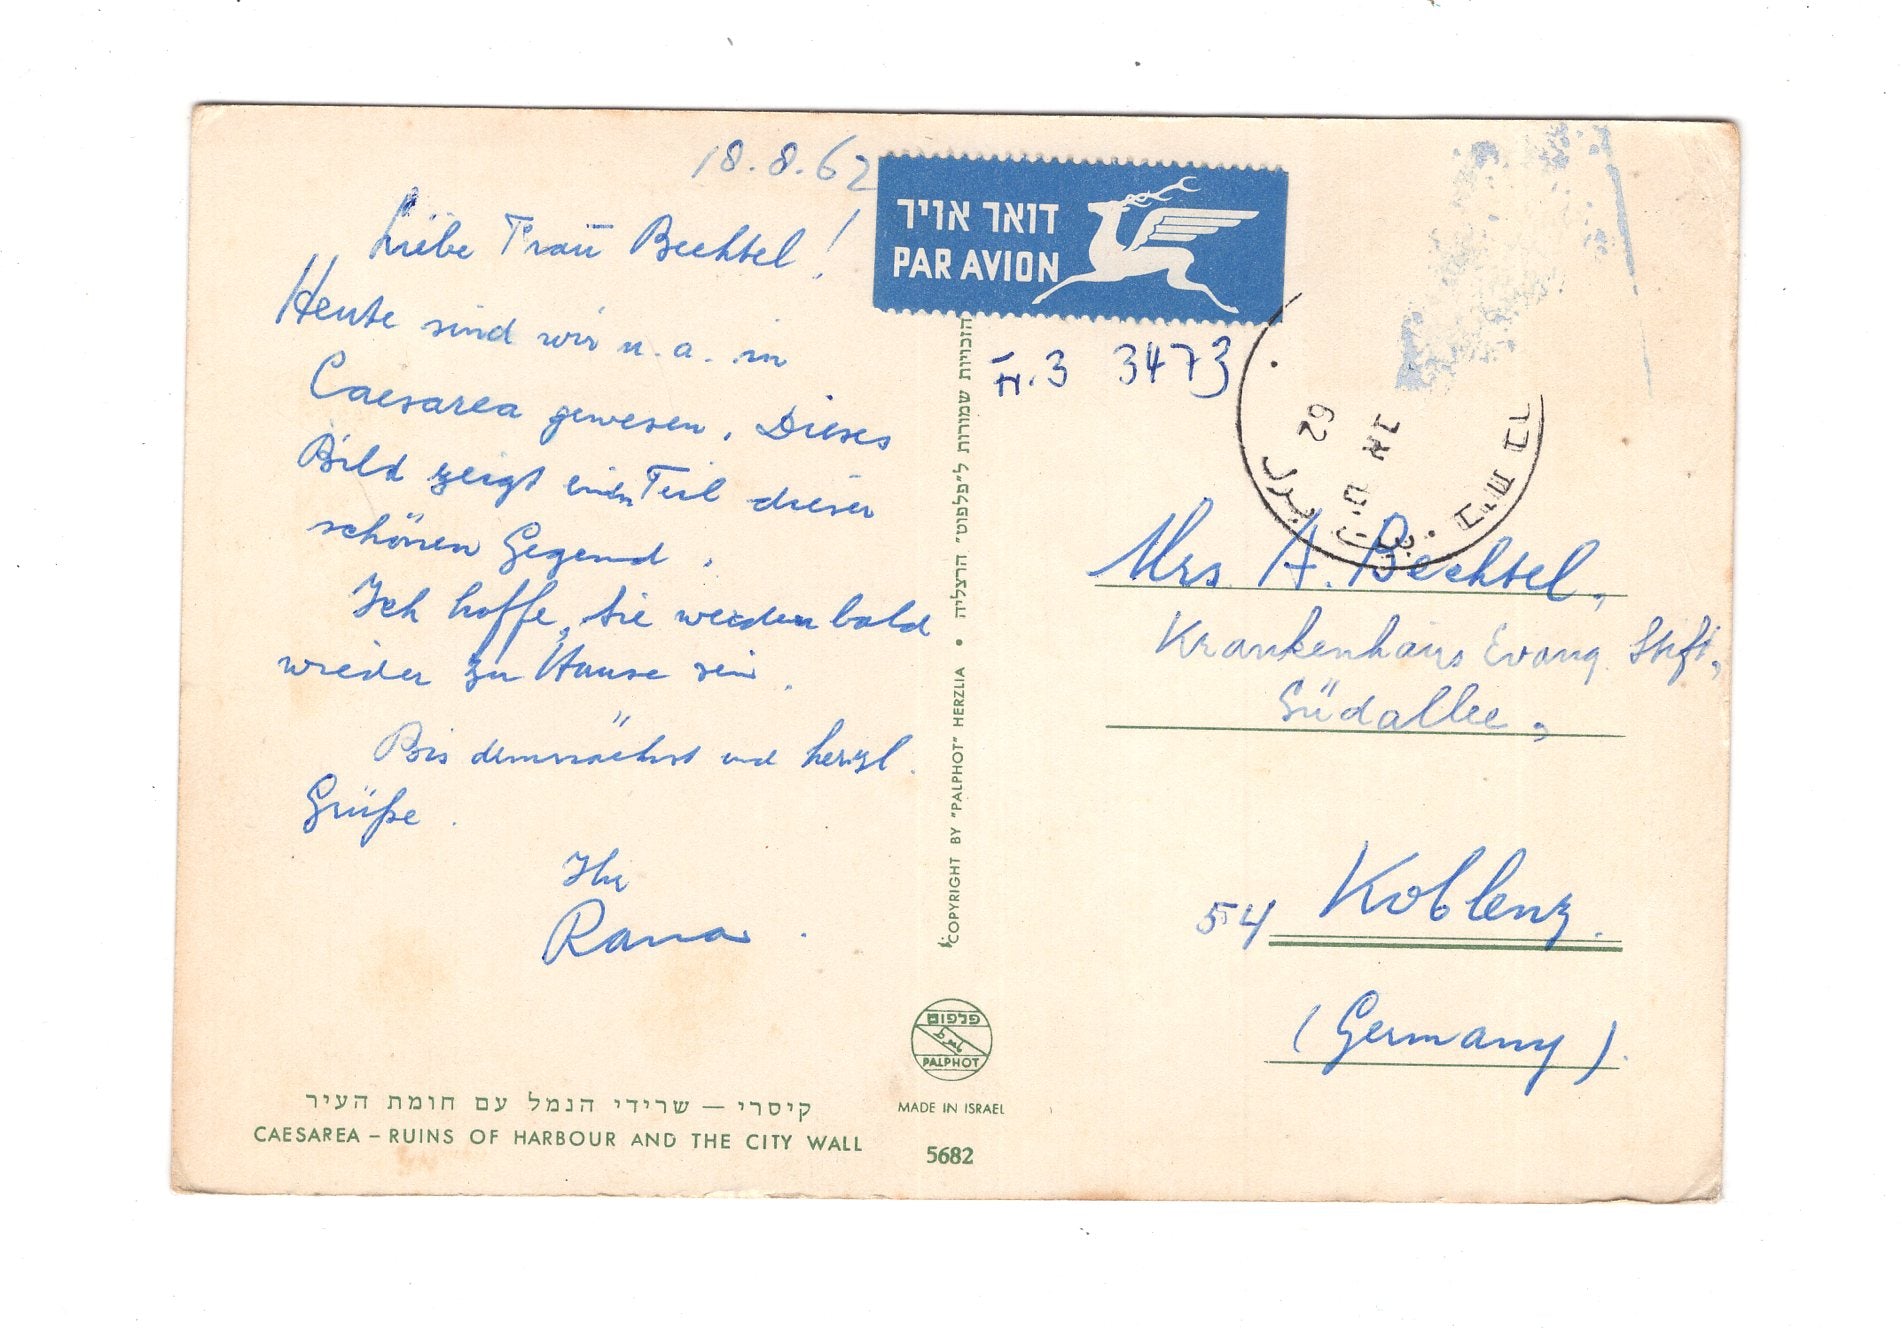 18.8.62
Liebe Frau Bechtel!
Heute sind wir u. a. in
Caesarea gewesen. Dieses
Bild zeigt einen Teil dieser
schönen Gegend.
Ich hoffe, Sie werden bald
wieder zu Hause sein.
Bis demnächst und herzl.
Grüße.
Ihr
Rana.
קיסרי – שרידי הנמל עם חומת העיר
CAESAREA – RUINS OF HARBOUR AND THE CITY WALL
דואר אויר
PAR AVION
הזכויות שמורות ל"פלפוט" הרצליה • COPYRIGHT BY "PALPHOT" HERZLIA
פלפוט
PALPHOT
MADE IN ISRAEL
5682
3 3473
62
Mrs. A. Bechtel,
Krankenhaus Evang. Stift,
Südallee,
54 Koblenz.
(Germany).